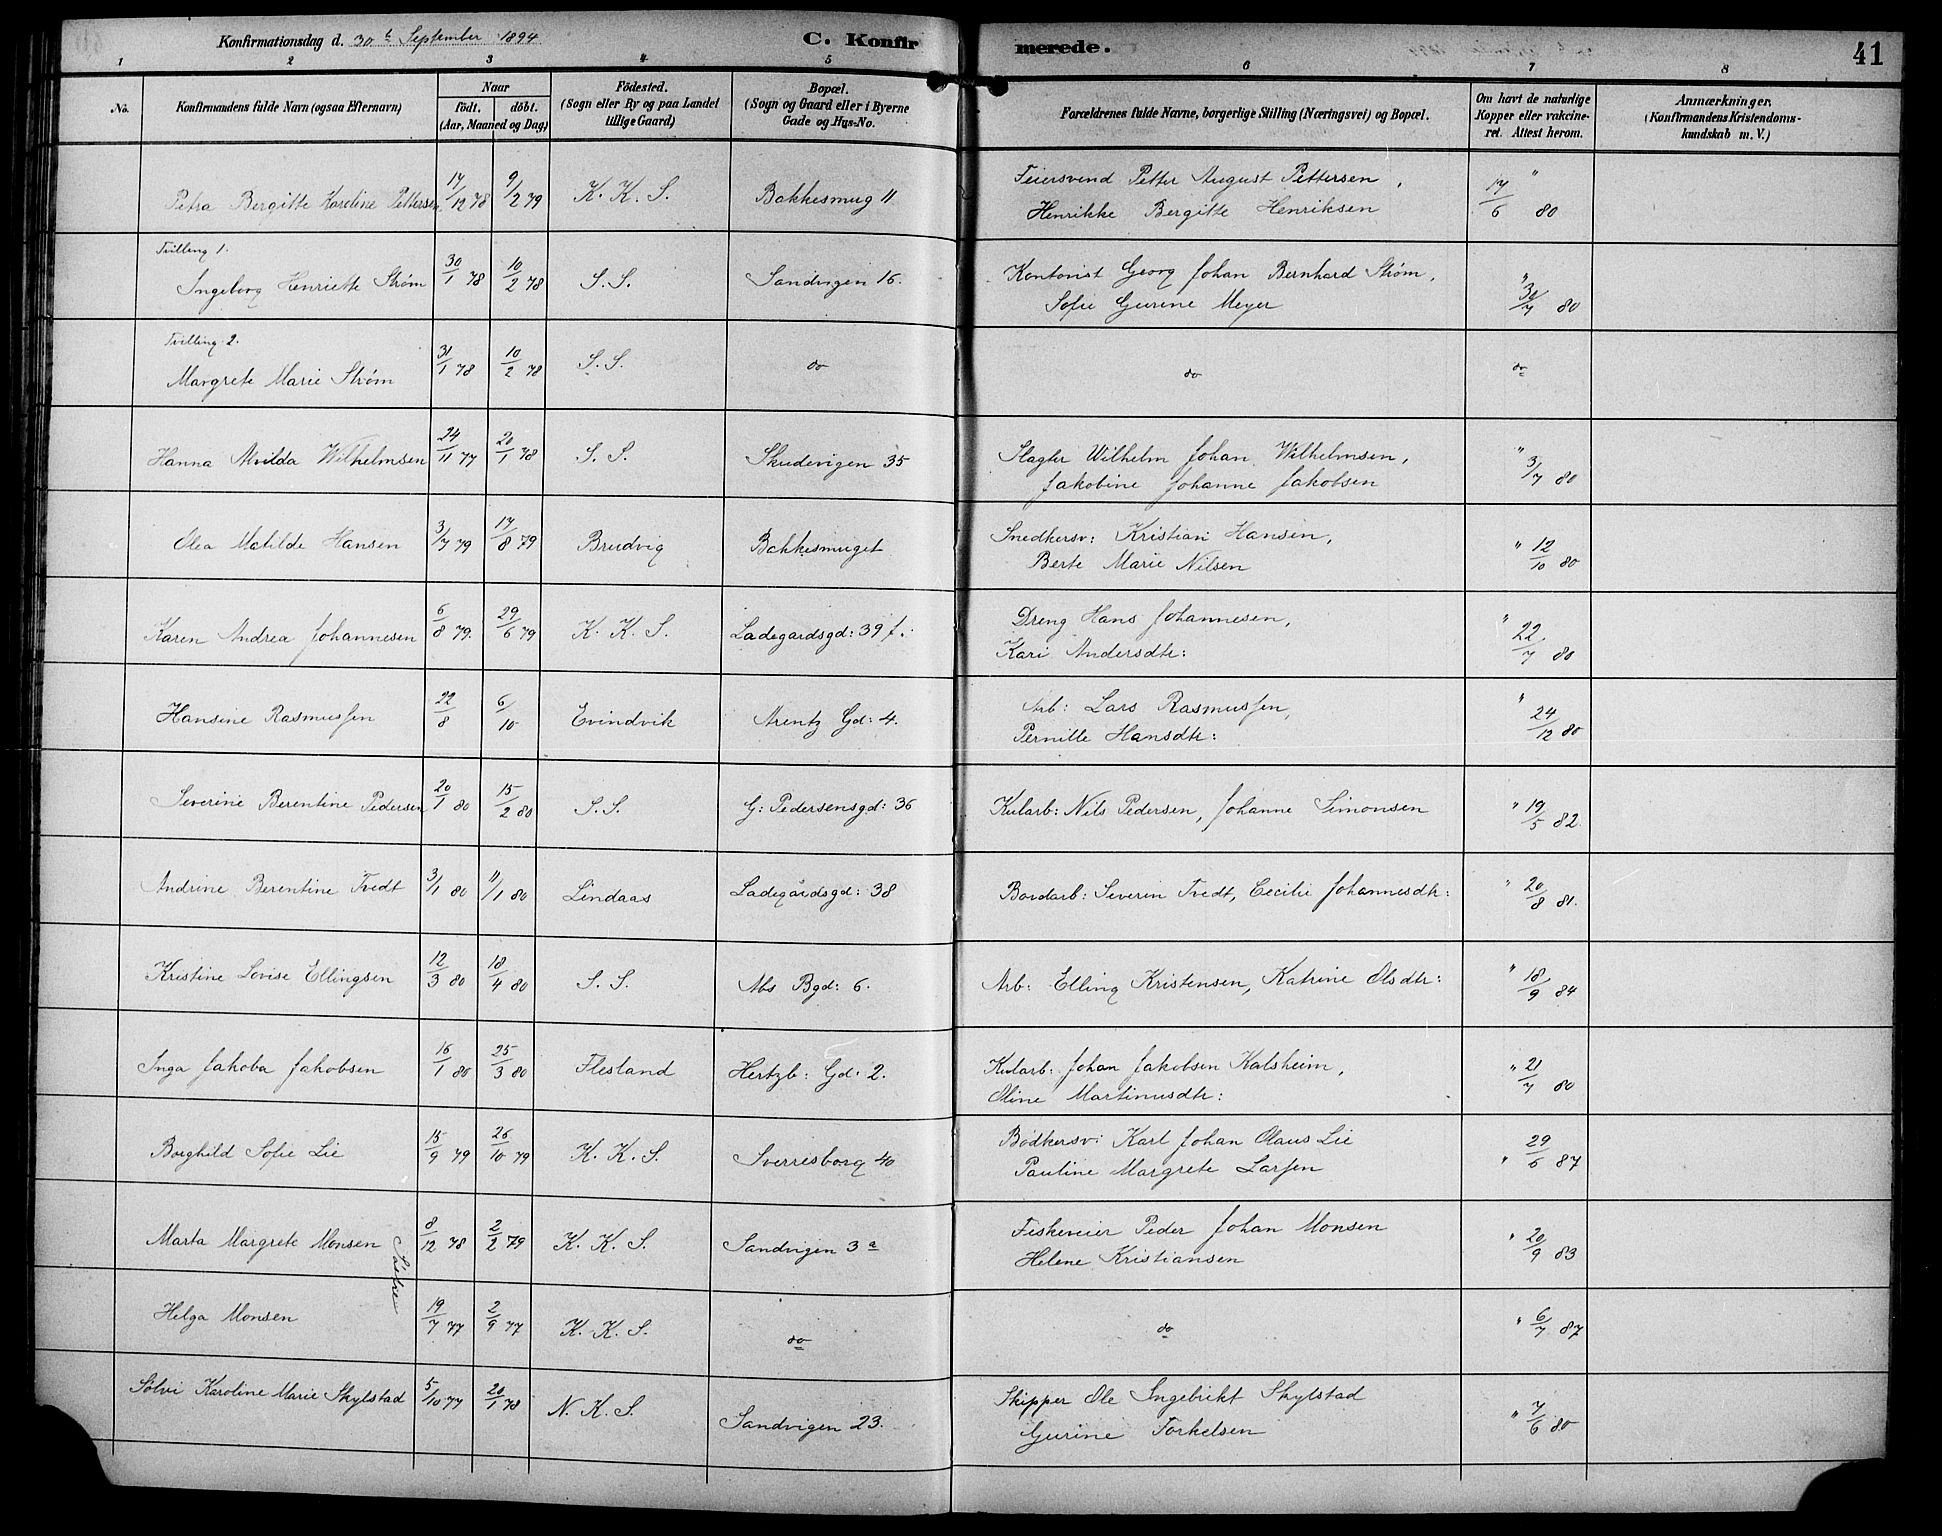 Konfirmationsdag d. 30te September 1894
C. Konfirmerede.
41
1 2 3 4 5 6 7 8
No. | Konfirmandens fulde Navn (ogsaa Efternavn) | Naar födt. döbt. (Aar, Maaned og Dag) | Födested. (Sogn eller By og paa Landet tillige Gaard) | Bopæl. (Sogn og Gaard eller i Byerne Gade og Hus-No. | Forældrenes fulde Navne, borgerlige Stilling (Næringsvei) og Bopæl. | Om havt de naturlige Kopper eller vakcineret. Attest herom. | Anmærkninger. (Konfirmandens Kristendomskundskab m. V.)
Petra Bergitte Karoline Pettersen | 17/12 78 | 9/2 79 | K. K. S. | Bakkesmug 11 | Feiersvend Petter August Pettersen, | 17/6 80 "
Henrikke Bergitte Henriksen
Tvilling 1.
Ingeborg Henriette Strøm | 30/1 78 | 10/2 78 | S. S. | Sandvigen 16. | Kontorist Georg Johan Bernhard Strøm, | " 30/7 80
Sofie Gurine Meyer
Tvilling 2.
Margrete Marie Strøm | 31/1 78 | 10/2 78 | S. S. | do | do | do
Hanna Alvilda Wilhelmsen | 24/11 77 | 20/1 78 | S. S. | Skudevigen 35 | Slagter Wilhelm Johan Wilhelmsen, | " 3/7 80
Jakobine Johanne Jakobsen
Olea Matilde Hansen | 3/7 79 | 17/8 79 | Brudvig | Bakkesmuget | Snedkersv: Kristian Hansen, | " 12/10 80
Berte Marie Nilsen
Karen Andrea Johannesen | 6/8 79. | 29/6 79 | K. K. S. | Ladegårdsgd: 39 f.: | Dreng Hans Johannesen, | " 22/7 80
Kari Andersdtr:
Hansine Rasmussen | 22/8 | 6/10 | Evindvik | Arentz Gd: 4. | Arb: Lars Rasmussen, | " 24/12 80
Pernille Hansdtr:
Severine Berentine Pedersen | 20/1 80 | 15/2 80 | S. S. | G: Pedersensgd: 36 | Kularb: Nils Pedersen, Johanne Simonsen | " 19/5 82.
Andrine Berentine Tvedt | 3/1 80 | 11/1 80 | Lindaas | Ladegårdsgd: 38 | Bordarb: Severin Tvedt, Cecilie Johannesdtr: | " 20/8 81.
Kristine Lovise Ellingsen | 12/3 80 | 18/4 80 | S. S. | Abs Bgd: 6. | Arb: Elling Kristensen, Katrine Olsdtr: | " 18/9 84
Inga Jakoba Jakobsen | 16/1 80 | 25/3 80 | Flesland | Hertzb: Gd: 2. | Kularb: Johan Jakobsen Kalsheim, | " 21/7 80
Oline Martinusdtr:
Borghild Sofie Lie | 15/9 79 | 26/10 79 | K. K. S. | Sverresborg 40 | Bödkersv: Karl Johan Olaus Lie | " 29/6 87
Pauline Margrete Larsen
Marta Margrete Monsen | 8/12 78 | 2/2 79 | K. K. S. | Sandvigen 3 a | Fiskeveier Peder Johan Monsen | " 20/9 83
Helene Kristiansen
Helga Monsen | 19/7 77 | 2/9 77 | K. K. S. | do | do | " 6/7 87
Sölvi Karoline Marie Skylstad | 5/10 77 | 20/1 78 | N. K. S. | Sandvigen 23. | Skipper Ole Ingebrikt Skylstad | " 7/6 80
Gurine Torkelsen